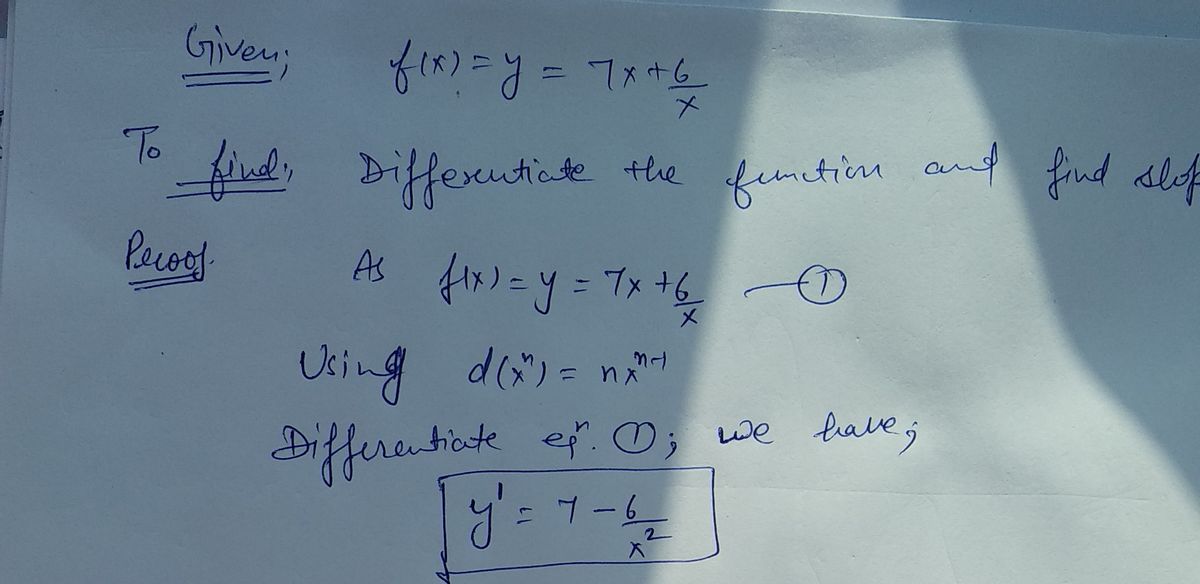 Given; f(x) = y = 7x + 6/x
To find; Differentiate the function and find
Proof. As f(x) = y = 7x + 6/x — ①
Using d(xⁿ) = nxⁿ⁻¹
Differentiate eqⁿ. ①; we have;
y' = 7 - 6/x²